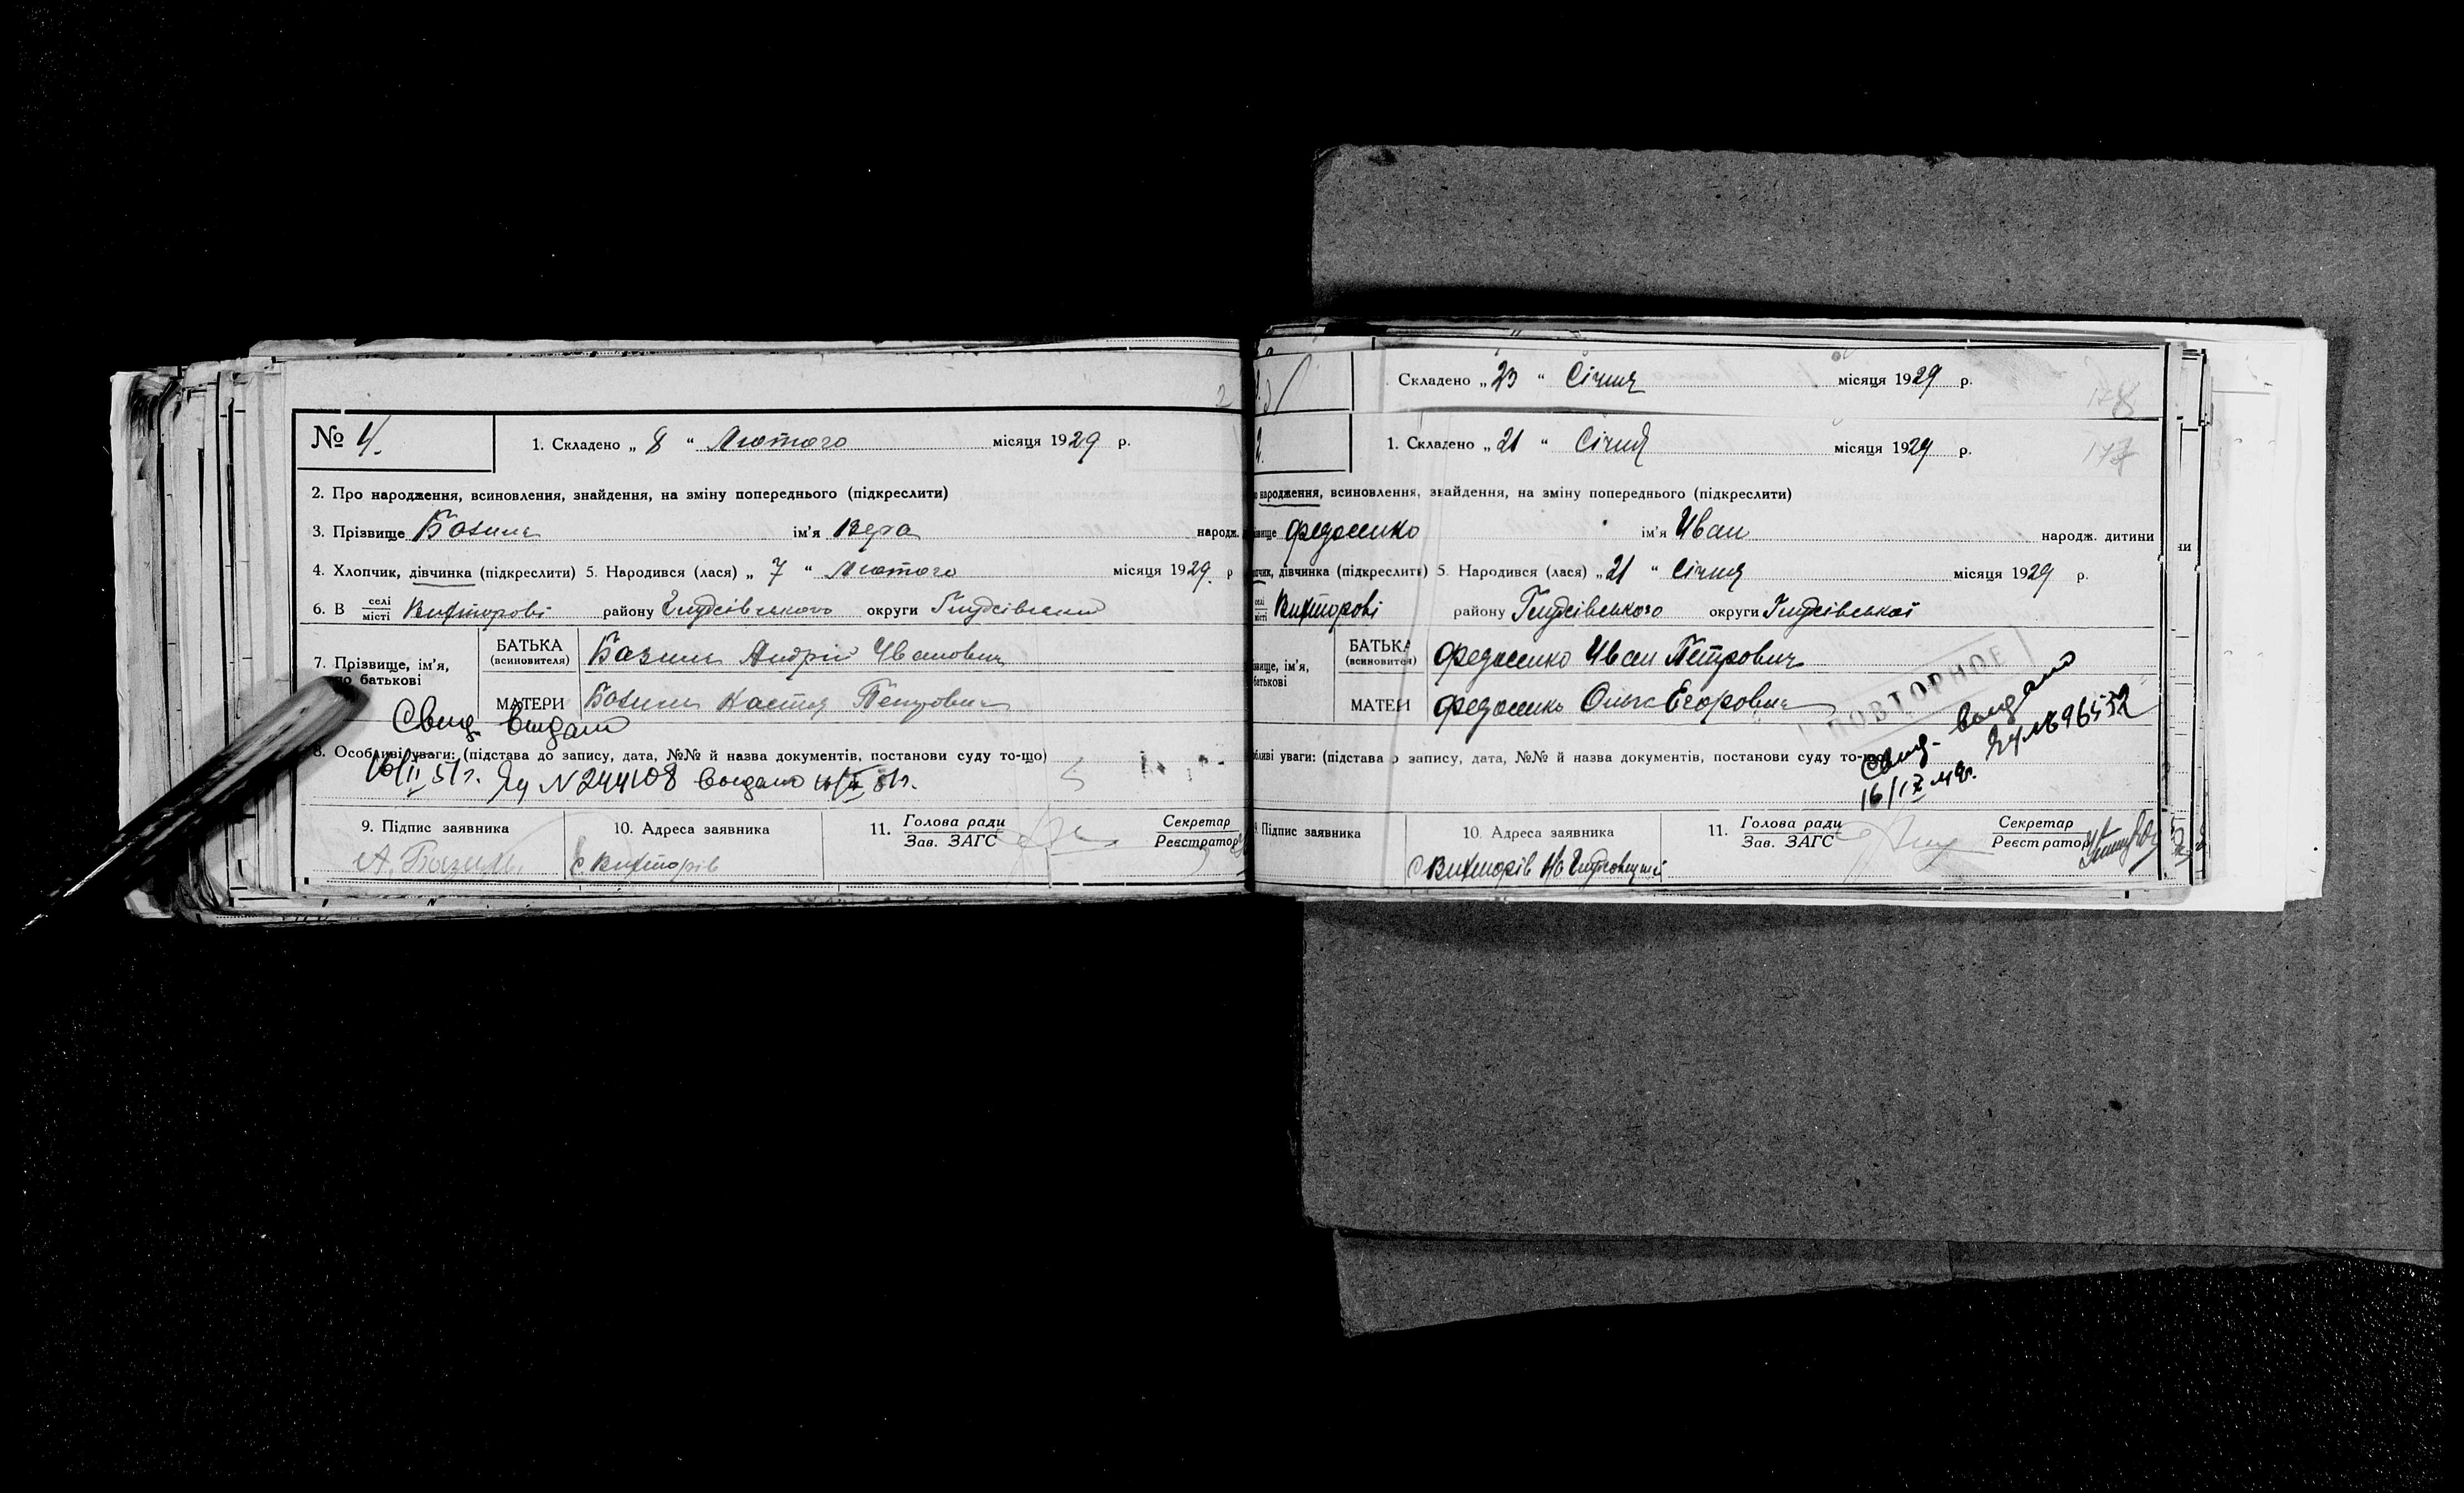 2
№ 4. 1. Складено „ 8 “ Лютого місяця 1929 р.
2. Про народження, всиновлення, знайдення, на зміну попереднього (підкреслити)
3. Прізвище Базиль ім'я Вера народж.
4. Хлопчик, дівчинка (підкреслити) 5. Народився (лася) „ 7 “ Лютого місяця 1929. р
6. В селі місті Вихторові району Глухівського округи Глухівський
7. Прізвище, ім'я, по батькові
БАТЬКА (всиновителя) Базиль Андрій Иванович
МАТЕРИ Базиль Настя Петровна
Свид. выдано
8. Особливі уваги: (підстава до запису, дата, №№ й назва документів, постанови суду то-що)
16/II 51г. N 244108 выдано 51г.
9. Підпис заявника 10. Адреса заявника 11. Голова ради Зав. ЗАГС Секретар Реєстратор
А. Базиль. с Вихторів
Складено „ 23 “ Січня місяця 1929 р.
178
2. 1. Складено „ 21 “ Січня місяця 1929 р.
177
народження, всиновлення, знайдення, на зміну попереднього (підкреслити)
Федосенко ім'я Иван народж. дитини
дівчинка (підкреслити) 5. Народився (лася) „ 21 “ Січня місяця 1929 р.
селі місті Вихторові району Глухівського округи Глухівської
БАТЬКА (всиновителя) Федосенко Иван Петрович
МАТЕРИ Федосенко Ольга Егоровна
ПОВТОРНОЕ
Свид. выдано
№ 696532
уваги: (підстава до запису, дата, №№ й назва документів, постанови суду то-що)
9. Підпис заявника 10. Адреса заявника 11. Голова ради Зав. ЗАГС Секретар Реєстратор
с Вихторів